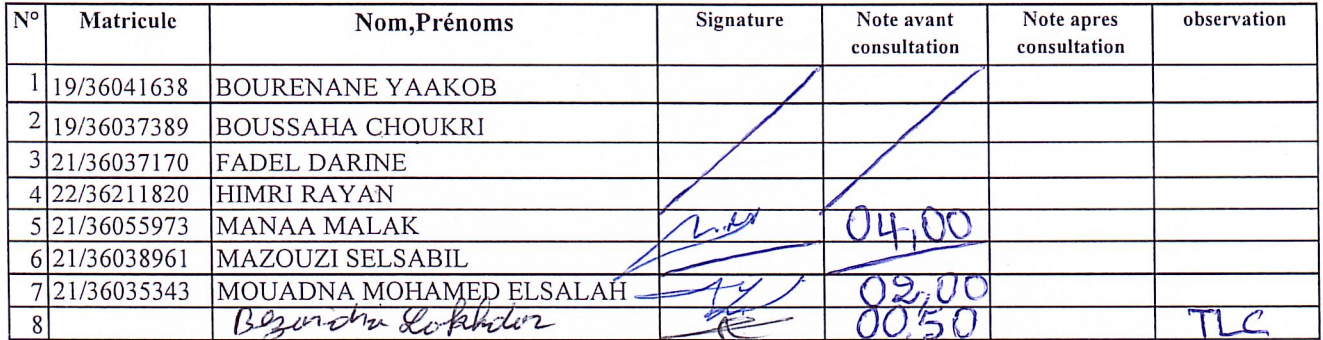 N° Matricule Nom,Prénoms Signature Note avant consultation Note apres consultation observation
1 19/36041638 BOURENANE YAAKOB
2 19/36037389 BOUSSAHA CHOUKRI
3 21/36037170 FADEL DARINE
4 22/36211820 HIMRI RAYAN
5 21/36055973 MANAA MALAK 04,00
6 21/36038961 MAZOUZI SELSABIL
7 21/36035343 MOUADNA MOHAMED ELSALAH 02,00
8 00.50 TLC